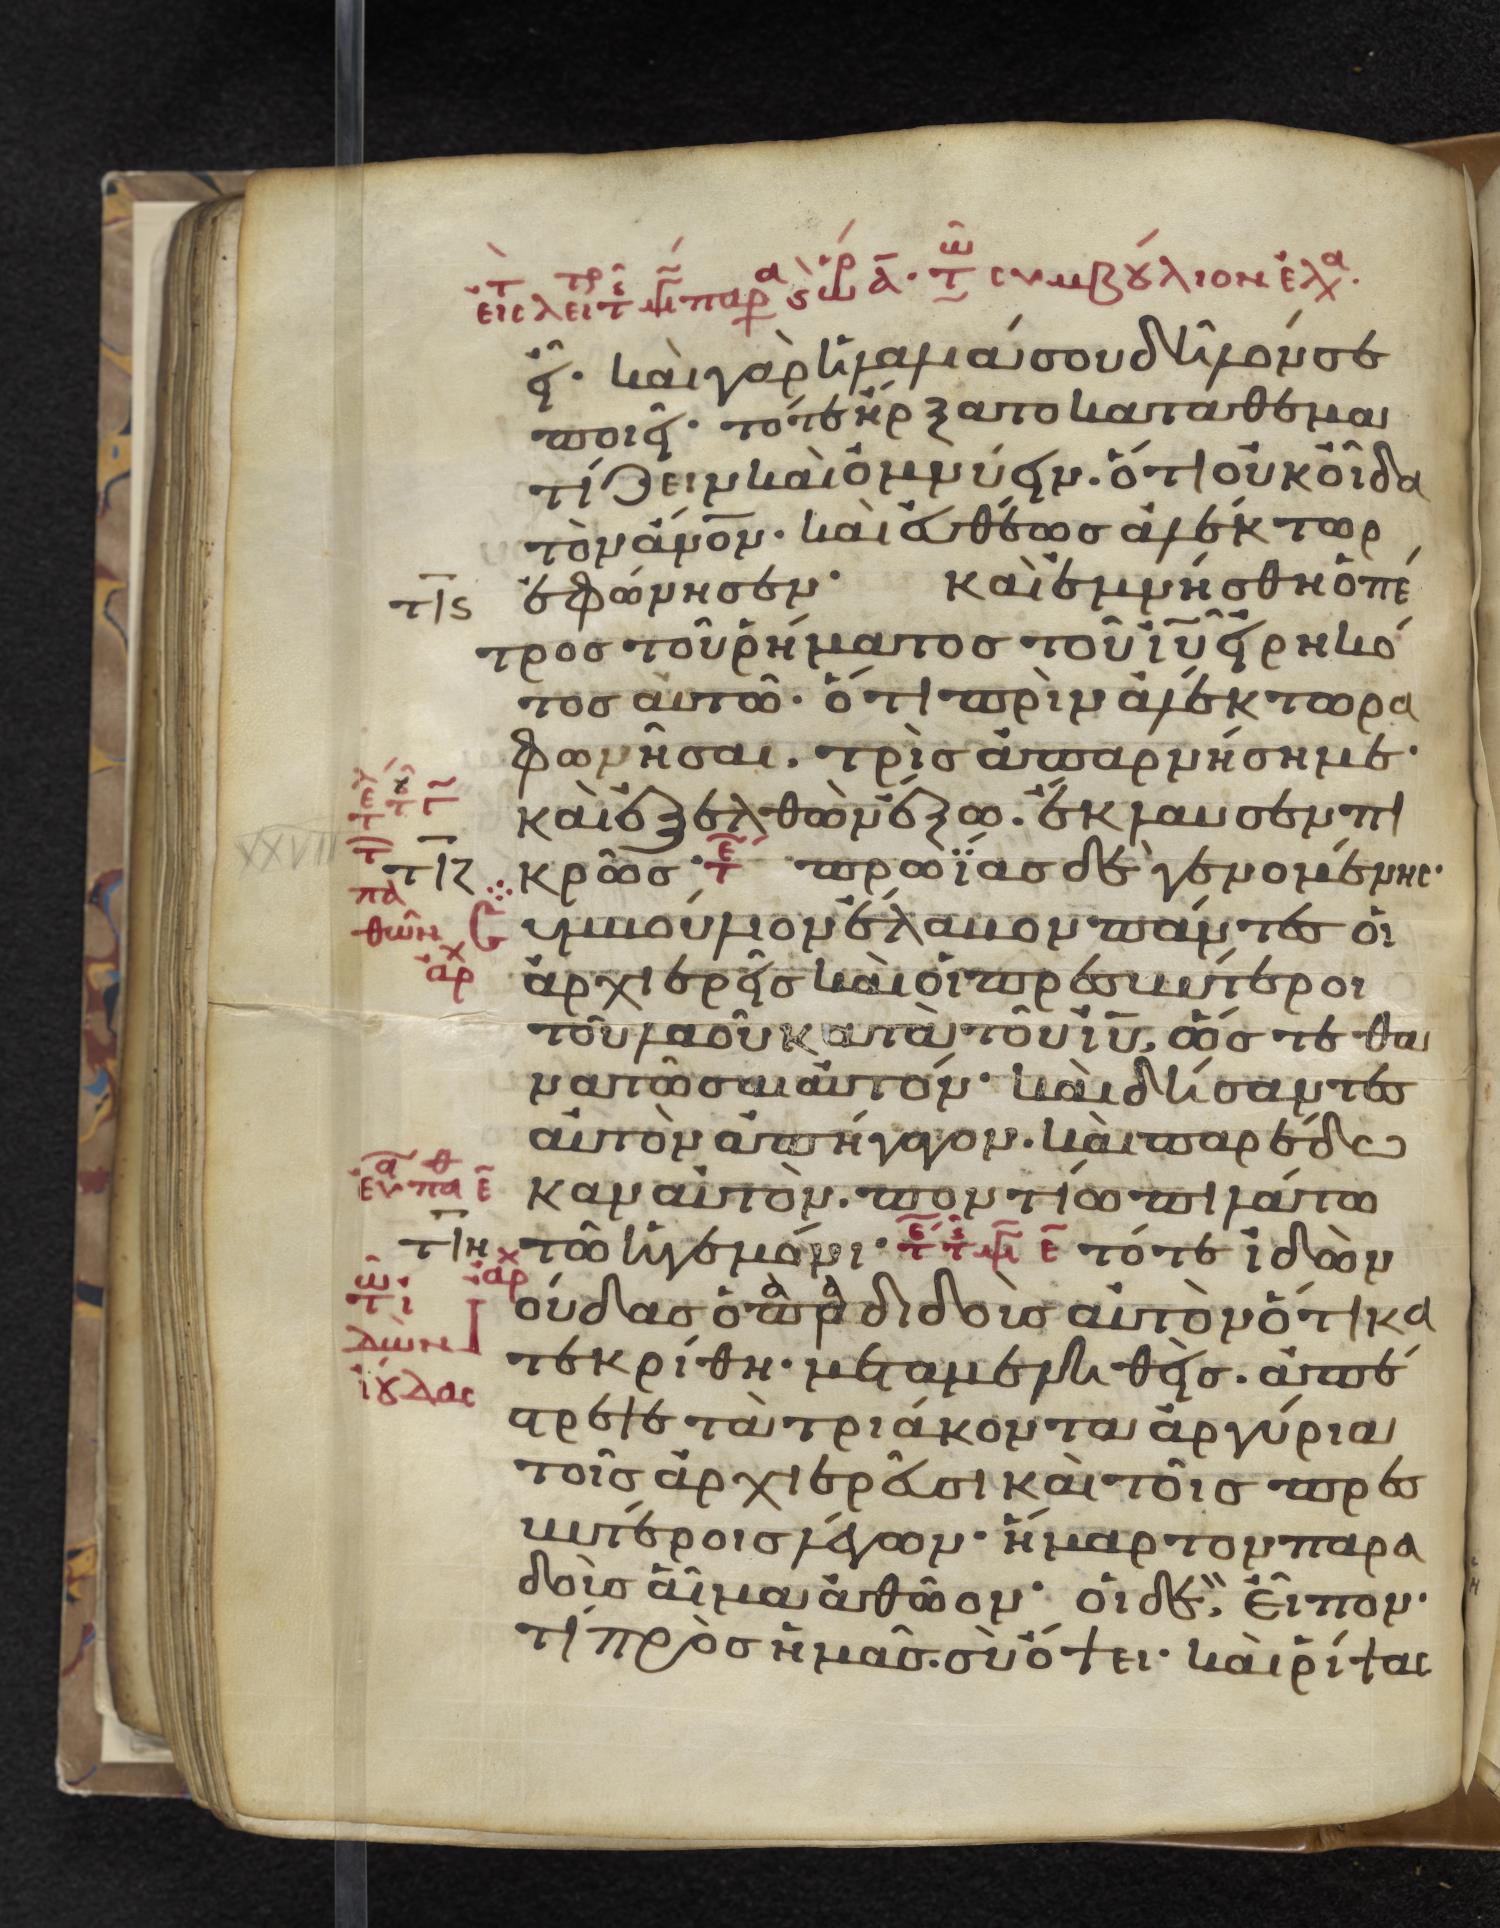 εἶ· καὶ γὰρ ἡ λαλιά σου δῆλόν σε
ποιεῖ· τότε ἤρξατο καταθεμα
τίζειν καὶ ὀμνύειν· ὅτι οὐκ οἶδα
τὸν ἄνον· καὶ εὐθέως ἀλέκτωρ
τις ἐφώνησεν· καὶ ἐμνήσθη ὁ πέ
τρος τοῦ ῥήματος τοῦ ιυ εἰρηκό
τος αὐτῶ· ὅτι πρὶν ἀλέκτορα
φωνῆσαι. τρὶς ἀπαρνήση με·
καὶ ἐξελθὼν ἔξω. ἔκλαυσεν πι
τιζ κρῶς· πρωΐας δὲ γενομένης·
συμβούλιον ἔλαβον πάντες οἱ
ἀρχιερεῖς καὶ οἱ πρεσβύτεροι
τοῦ λαοῦ κατὰ τοῦ ιυ, ὥστε θα
νατῶσαι αὐτόν· καὶ δήσαντες
αὐτὸν ἀπήγαγον. καὶ παρέδω
καν αὐτὸν. ποντίω πιλάτω
τιη τῶ ἡγεμόνι· τότε ἰδὼν
ἰούδας ὁ παραδιδοὺς αὐτὸν ὅτι κα
τεκρίθη· μεταμεληθεὶς. ἀπέ
στρεψε τὰ τριάκοντα ἀργύρια
τοῖς ἀρχιερεῦσι καὶ τοῖς πρεσ
βυτέροις λέγων· ἥμαρτον παρα
δοὺς αἷμα ἀθῶον· οἱ δὲ, εἶπον·
τί πρὸς ἡμᾶς. σὺ ὄψει· καὶ ῥίψας